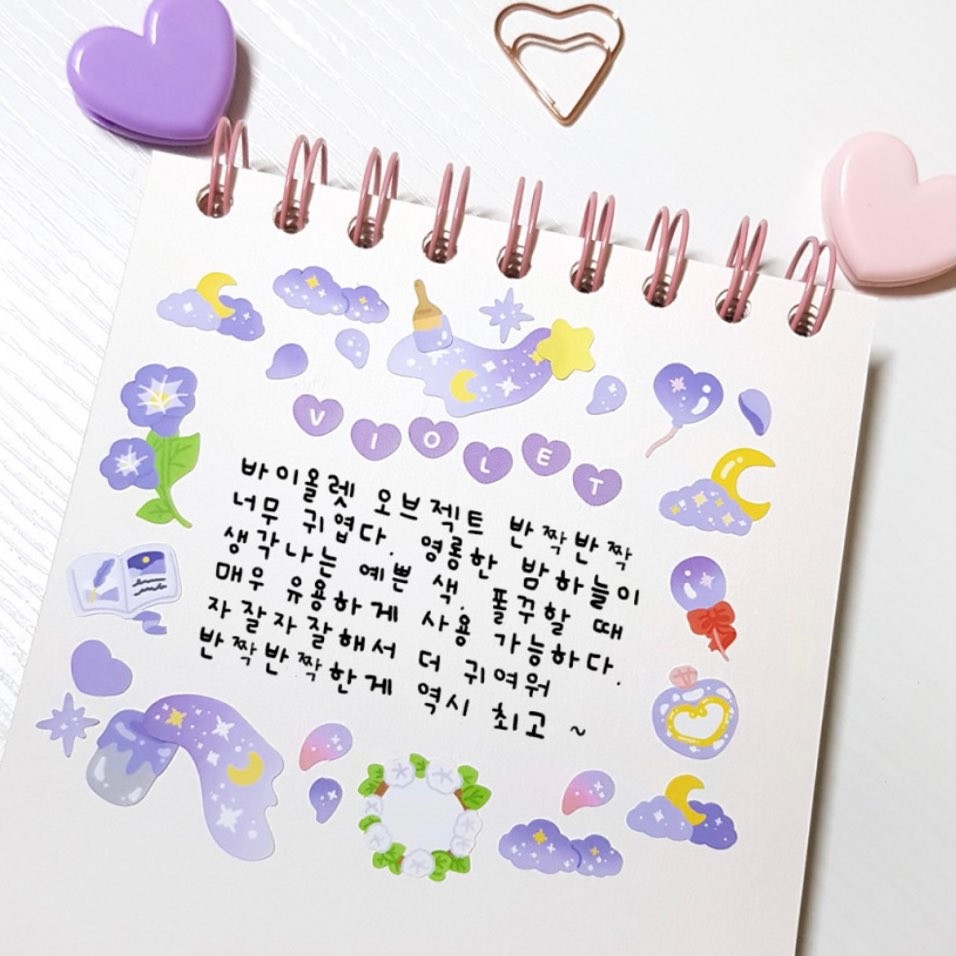 VIOLET
바이올렛 오브젝트 반짝반짝
너무 귀엽다. 영롱한 밤하늘이
생각나는 예쁜 색. 폴꾸할 때
매우 유용하게 사용 가능하다.
자잘자잘해서 더 귀여워
반짝반짝한게 역시 최고 ~